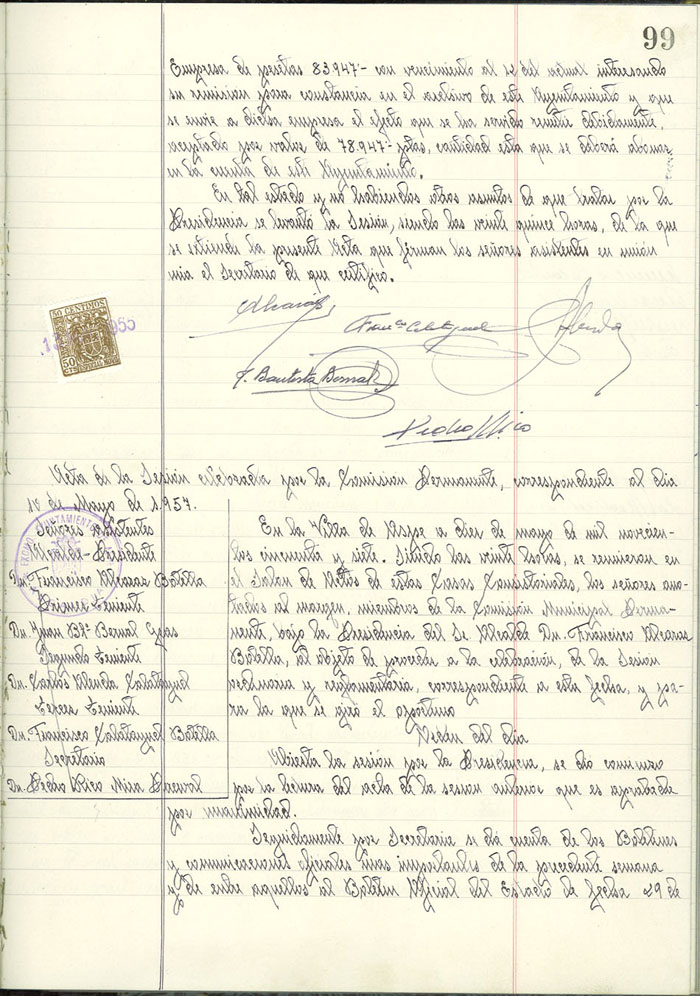 99
Empresa de pesetas 83.947'- con vencimiento al 12 del actual interesando
su remision para constancia en el archivo de este Ayuntamiento y que
se envie a dicha empresa el efecto que se ha servido remitir debidamente,
aceptado por valor de 78.947'- ptas, cantidad esta que se deberá abonar
en la cuenta de este Ayuntamiento.
En tal estado y no habiendos otros asuntos de que tratar por la
Presidencia se levantó la Sesión, siendo las veinte quince horas, de la que
se extiende la presente Acta que firman los señores asistentes en unión
mia el Secretario de que certifico.
50 CENTIMOS
50
1955
J. Bautista Bernal
Pedro Rico
Acta de la Sesión celebrada por la Comision Permanente, correspondiente al dia
10 de Mayo de 1.957.
Señores asistentes
Alcalde-Presidente
Dn. Francisco Alcaraz Botella
Primer Teniente
Dn. Juan Bta. Bernal
Segundo Teniente
Dn. Carlos Calatayud
Tercer Teniente
Dn. Francisco Calatayud Botella
Secretario
Dn. Pedro Rico Mira
AYUNTAMIENTO
En la Villa de Aspe a diez de mayo de mil novecien-
tos cincuenta y siete. Siendo las veinte horas, se reunieron en
el Salon de Actos de estas Casas Consistoriales, los señores ano-
tados al margen, miembros de la Comisión Municipal Perma-
nente, bajo la Presidencia del Sr. Alcalde Dn. Francisco Alcaraz
Botella, al objeto de proceder a la celebración, de la Sesion
ordinaria y reglamentaria, correspondiente a esta fecha, y pa-
ra la que se giró el oportuno
Orden del dia
Abierta la sesión por la Presidencia, se dió comienzo
por la lectura del acta de la sesion anterior que es aprobada
por unanimidad.
Seguidamente por Secretaria se dá cuenta de los Boletines
y comunicaciones oficiales mas importantes de la precedente semana
y de entre aquellos al Boletin Oficial del Estado de fecha 29 de